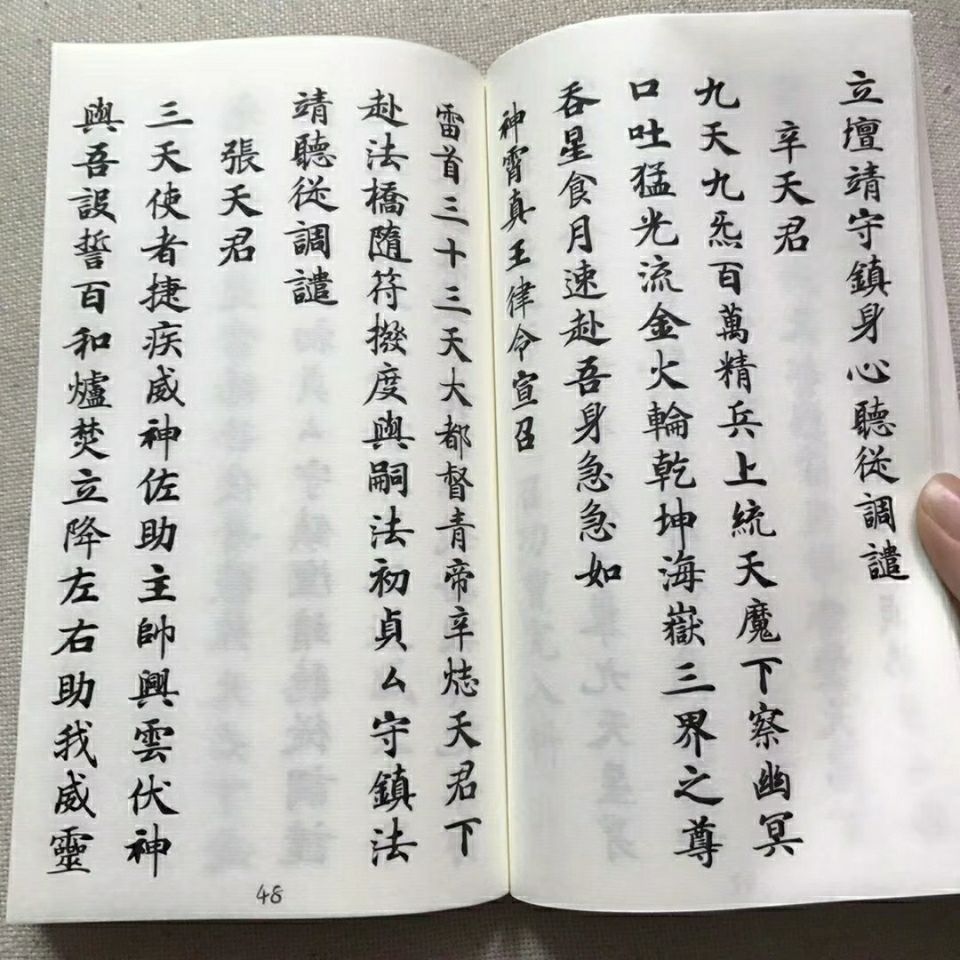 立壇靖守鎮身心聽從調譴
辛天君
九天九炁百萬精兵上統天魔下察幽冥
口吐猛光流金火輪乾坤海嶽三界之尊
吞星食月速赴吾身急急如
神霄真王律令宣召
雷首三十三天大都督青帝辛㷓天君下
赴法橋隨符撥度與嗣法初貞厶守鎮法
靖聽從調譴
張天君
三天使者捷疾威神佐助主帥興雲伏神
與吾設誓百和爐焚立降左右助我威靈
48